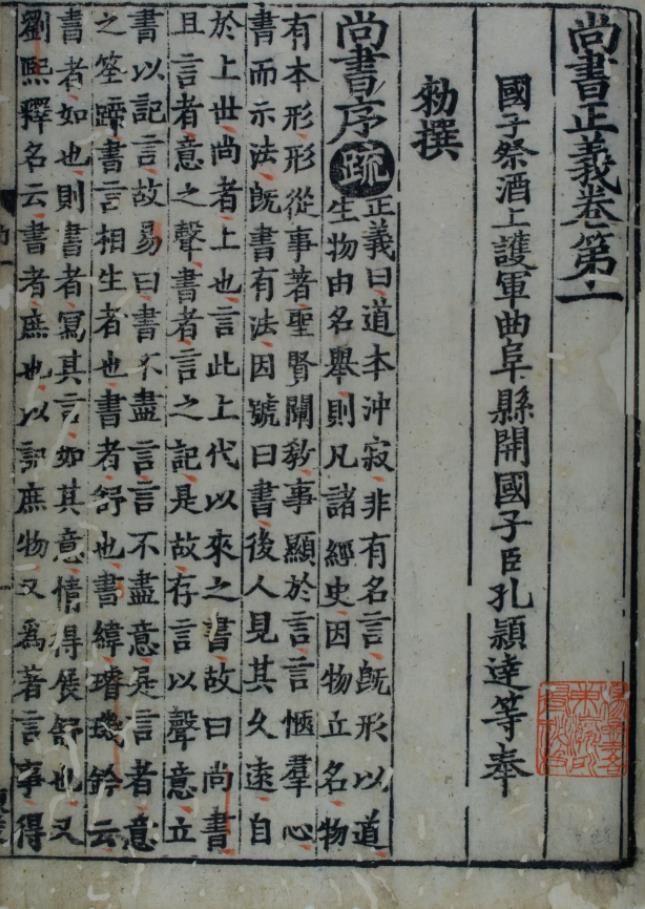 尚書正義卷第一
國子祭酒上護軍曲阜縣開國子臣孔穎達等奉
勑撰
尚書序疏
正義曰道本沖寂非有名言既形以道
生物由名舉則凡諸經史因物立名物
有本形形從事著聖賢闡教事顯於言言愜羣心
書而示法既書有法因號曰書後人見其久遠自
於上世尚者上也言此上代以來之書故曰尚書
且言者意之聲書者言之記是故存言以聲意立
書以記言故易曰書不盡言言不盡意是言者意
之筌蹄書言相生者也書者舒也書緯璿璣鈐云
書者如也則書者寫其言如其意情得展舒也又
劉熙釋名云書者庶也以記庶物又爲著言事得